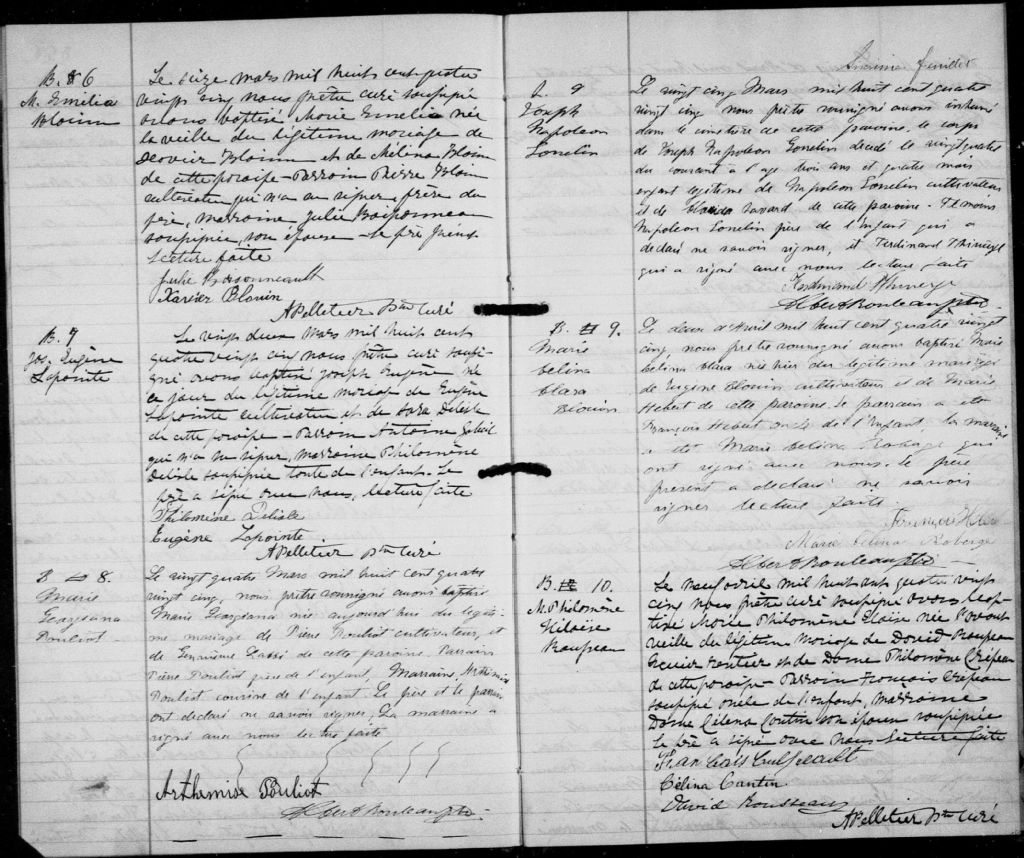 B. 6
M. Emilia
Blouin
Le seize mars mil huit cent quatre
vingt cinq nous prêtre curé soussigné
avons baptisé Marie Emelie née
la veille du légitime mariage de
Xavier Blouin et de Mélina Blouin
de cette paroisse - Parrain Pierre Blouin
cultivateur qui n'a su signer, frère du
père, marraine Julie Boissonneau
soussignée, son épouse - Le père
Lecture faite
Julie Boissonneault
Xavier Blouin
A Pelletier Ptre Curé
B. 7
Jos. Eugène
Lapointe
Le vingt deux Mars mil huit cent
quatre vingt cinq nous prêtre curé soussi-
gné avons baptisé Joseph Eugène né
ce jour du légitime mariage de Eugène
Lapointe cultivateur et de Sara Delisle
de cette paroisse - Parrain Antoine
qui n'a su signer, marraine Philomène
Delisle soussignée tante de l'enfant. Le
père a signé avec nous, lecture faite
Philomène Delisle
Eugène Lapointe
A Pelletier Ptre Curé
B 8.
Marie
Georgiana
Pouliot
Le vingt quatre Mars mil huit cent quatre
vingt cinq, nous prêtre soussigné avons baptisé
Marie Georgiana née aujourd'hui du légiti-
me mariage de Pierre Pouliot cultivateur, et
de de cette paroisse. Parrain
Pierre Pouliot père de l'enfant, Marraine, Arthémise
Pouliot cousine de l'enfant. Le père et le parrain
ont declaré ne savoir signer, La marraine a
signé avec nous lecture faite
Arthemise Pouliot
Albert Rouleau ptre.
feuillet
S. 2
Joseph
Napoleon
Gosselin
Le vingt cinq Mars mil huit cent quatre
vingt cinq nous prêtre soussigné avons inhumé
dans le cimetière de cette paroisse, le corps
de Joseph Napoleon Gosselin decédé le vingt quatre
du courant à l'age trois ans et quatre mois
enfant légitime de Napoleon Gosselin cultivateur
et de Vavard de cette paroisse - Témoins
Napoleon Gosselin père de l'enfant qui a
declaré ne savoir signer, et Ferdinand
qui a signé avec nous lecture faite
Ferdinand
Albert Rouleau ptre.
B. 9.
Marie
Celina
Clara
Blouin
Le deux d'Avril mil huit cent quatre vingt
cinq nous prêtre soussigné avons baptisé Marie
Celina Clara née hier du légitime mariage
de Eugène Blouin cultivateur et de
Hebert de cette paroisse. Le parrain a été
François Hebert oncle de l'enfant la marraine
a été Marie Celina Roberge qui
ont signé avec nous. Le père
present a declaré ne savoir
signer lecture faite.
François Hébert
Marie Célina Roberge
Albert Rouleau ptre
B. 10.
M. Philomène
Héloïse
Rousseau
Le neuf avril mil huit cent quatre vingt
cinq nous prêtre curé soussigné avons bap-
tisé Marie Philomène Eloise née l'avant
veille du légitime mariage de David Rousseau
Ecuier rentier et de Dame Philomène Crépeau
de cette paroisse - Parrain François Crépeau
soussigné oncle de l'enfant, Marraine
Dame Célina Cantin son épouse soussignée
Le père a signé avec nous Lecture faite
Célina Cantin
David Rousseau
A Pelletier Ptre Curé